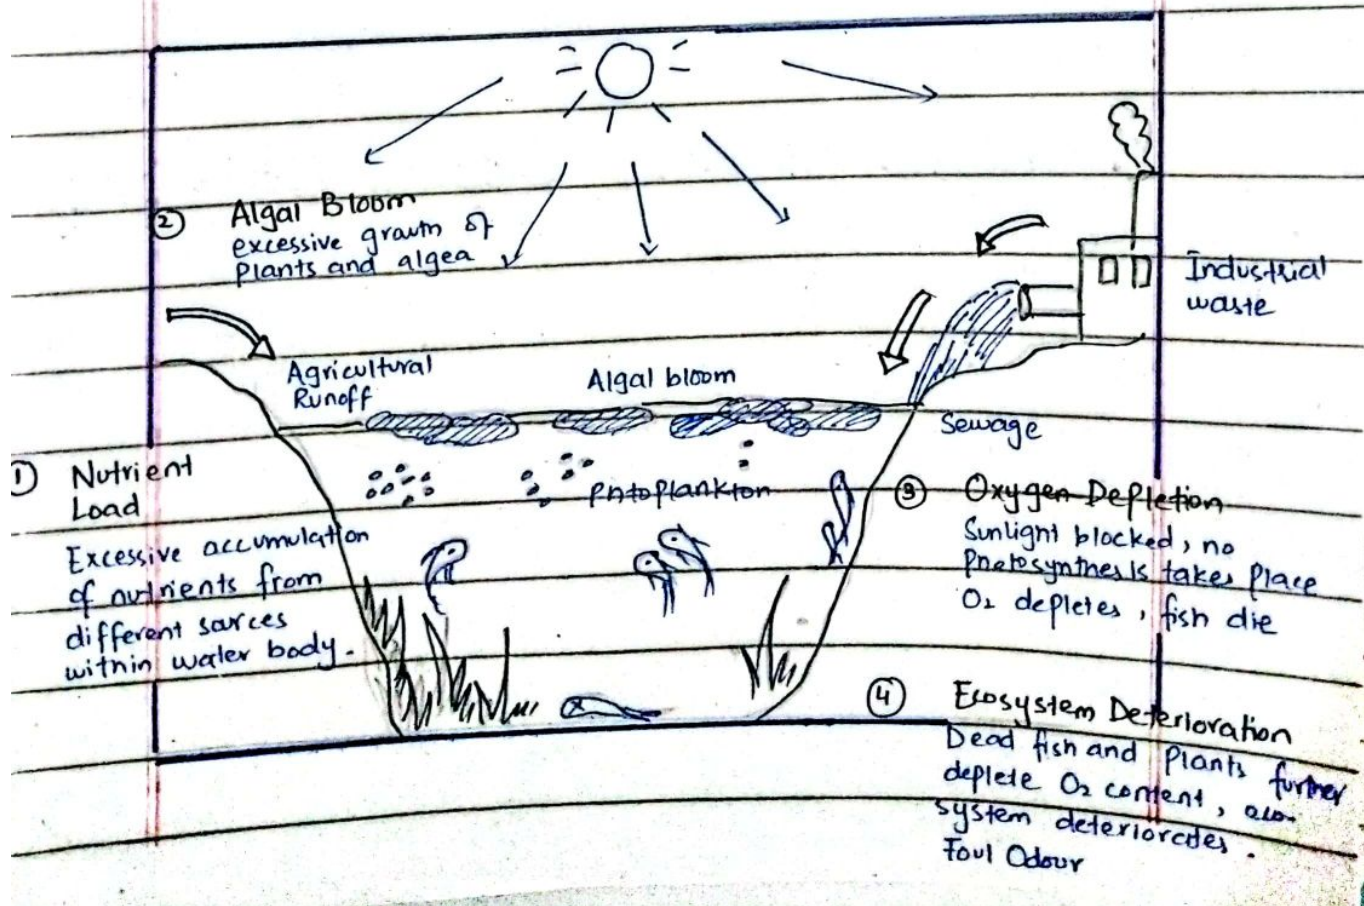 ② Algal Bloom
excessive growth of
Plants and algea
Industrial
waste
Agricultural
Runoff
Algal bloom
Sewage
① Nutrient
Load
Excessive accumulation
of nutrients from
different sarces
within water body.
Phtoplankton
③ Oxygen Depletion
Sunlight blocked, no
Photosynthesis takes place
O₂ depletes, fish die
④ Ecosystem Deterioration
Dead fish and plants further
deplete O₂ content, eco-
system deteriorates.
Foul Odour